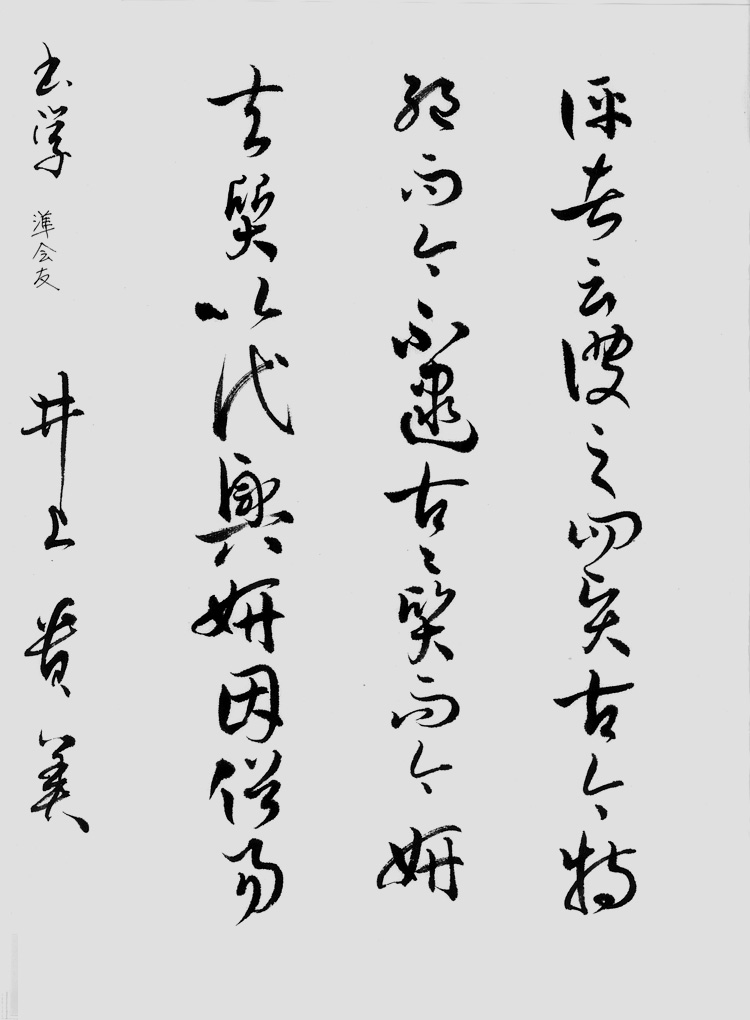 評者云彼之四賢古今特
絶而今不逮古々質而今妍
夫質以代興妍因俗易
書学 準会友 井上貴美